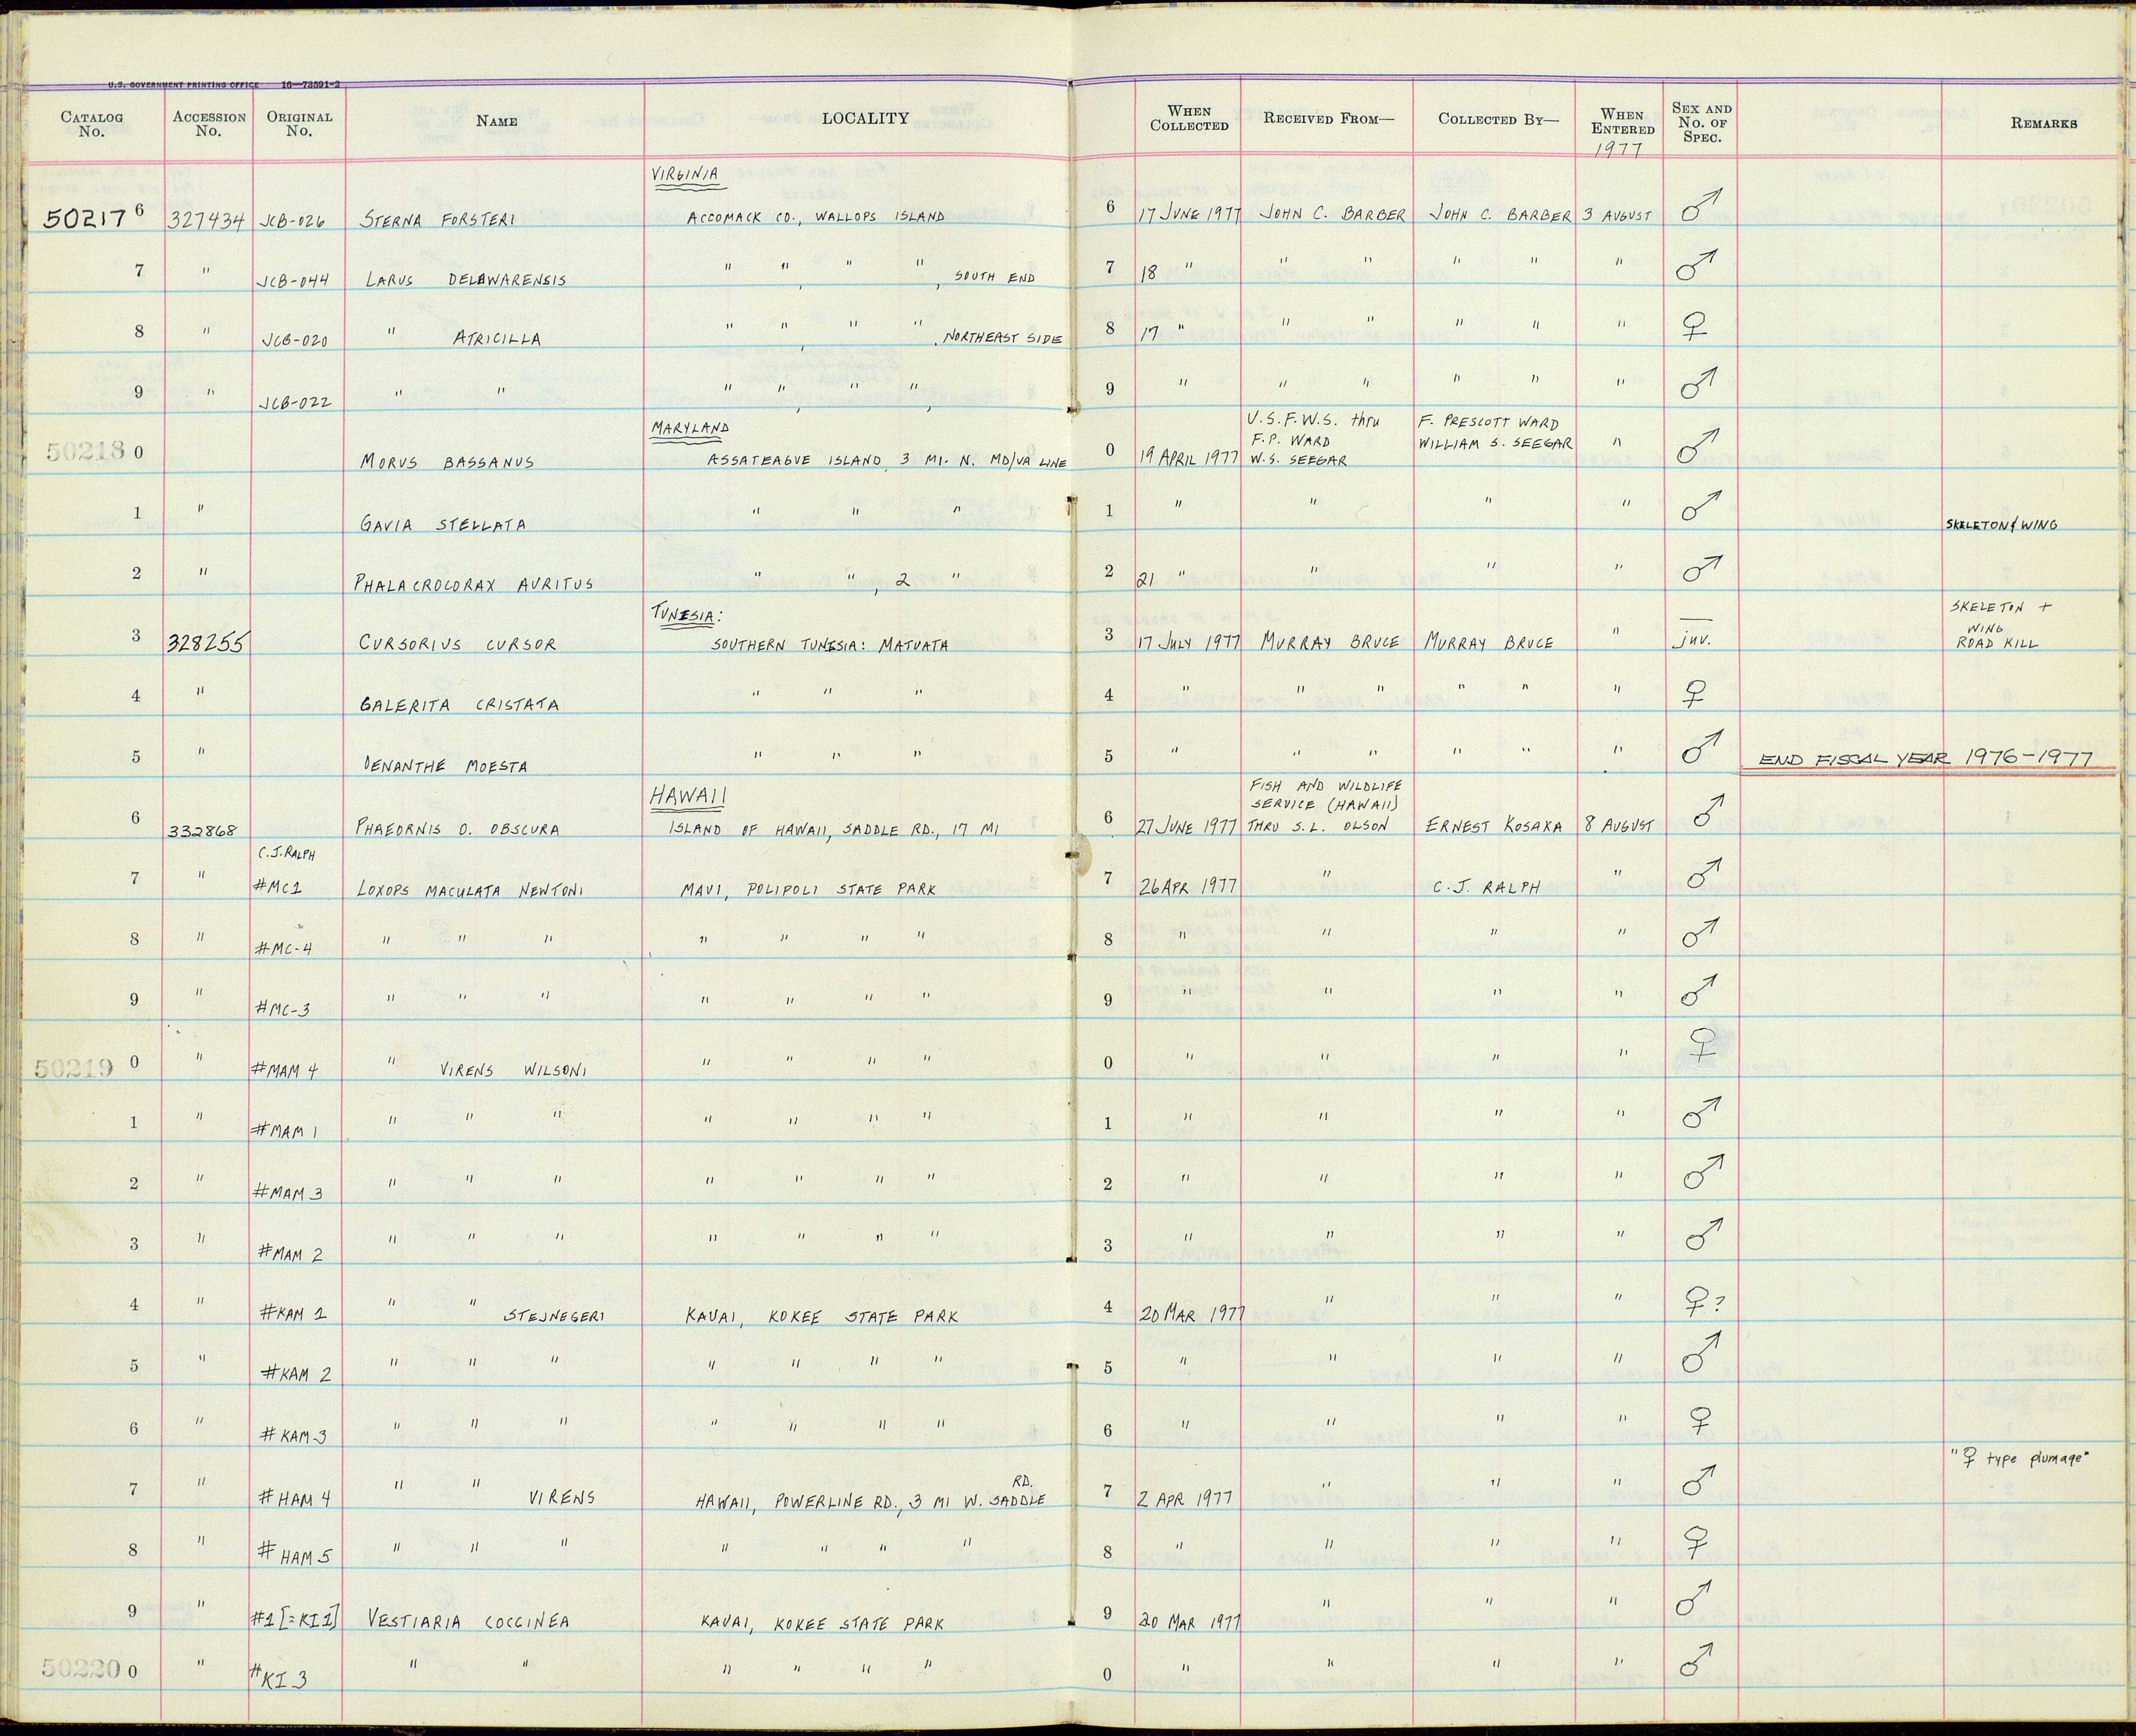 U.S. GOVERNMENT PRINTING OFFICE 16—73591-2
CATALOG No. ACCESSION No. ORIGINAL No. NAME LOCALITY WHEN COLLECTED RECEIVED FROM— COLLECTED BY— WHEN ENTERED SEX AND No. OF SPEC. REMARKS
1977
VIRGINIA
50217 6 327434 JCB-026 STERNA FORSTERI ACCOMACK CO., WALLOPS ISLAND 6 17 JUNE 1977 JOHN C. BARBER JOHN C. BARBER 3 AUGUST ♂
7 " JCB-044 LARUS DELAWARENSIS " " , " " , SOUTH END 7 18 " " " " " " ♂
8 " JCB-020 " ATRICILLA " " , " " , NORTHEAST SIDE 8 17 " " " " " " ♀
9 " JCB-022 " " " " , " " , 9 " " " " " " ♂
MARYLAND U.S.F.W.S. thru F. PRESCOTT WARD
F.P. WARD WILLIAM S. SEEGAR
50218 0 MORUS BASSANUS ASSATEAGUE ISLAND, 3 MI. N. MD/VA LINE 0 19 APRIL 1977 W.S. SEEGAR " ♂
1 " GAVIA STELLATA " " " 1 " " " " ♂ SKELETON & WING
2 " PHALACROCORAX AURITUS " " , 2 " 2 21 " " " " ♂
TUNESIA: SKELETON +
WING
3 328255 CURSORIUS CURSOR SOUTHERN TUNESIA: MATUATA 3 17 JULY 1977 MURRAY BRUCE MURRAY BRUCE " — juv. ROAD KILL
4 " GALERITA CRISTATA " " " 4 " " " " " " ♀
5 " OENANTHE MOESTA " " " 5 " " " " " " ♂ END FISCAL YEAR 1976-1977
HAWAII FISH AND WILDLIFE
SERVICE (HAWAII)
6 332868 PHAEORNIS O. OBSCURA ISLAND OF HAWAII, SADDLE RD., 17 MI 6 27 JUNE 1977 THRU S.L. OLSON ERNEST KOSAKA 8 AUGUST ♂
C.J. RALPH
7 " #MC1 LOXOPS MACULATA NEWTONI MAUI, POLIPOLI STATE PARK 7 26 APR 1977 " C.J. RALPH " ♂
8 " #MC-4 " " " " " " " 8 " " " " ♂
9 " #MC-3 " " " " " " " 9 " " " " ♂
50219 0 " #MAM 4 " VIRENS WILSONI " " " " 0 " " " " ♀
1 " #MAM 1 " " " " " " " 1 " " " " ♂
2 " #MAM 3 " " " " " " " 2 " " " " ♂
3 " #MAM 2 " " " " " " " 3 " " " " ♂
4 " #KAM 1 " " STEJNEGERI KAUAI, KOKEE STATE PARK 4 20 MAR 1977 " " " ♀?
5 " #KAM 2 " " " " " " " 5 " " " " ♂
6 " #KAM 3 " " " " " " " 6 " " " " ♀
RD. "♀ type plumage"
7 " #HAM 4 " " VIRENS HAWAII, POWERLINE RD., 3 MI W. SADDLE 7 2 APR 1977 " " " ♂
8 " #HAM 5 " " " " " " " 8 " " " " ♀
9 " #1 [=KI1] VESTIARIA COCCINEA KAUAI, KOKEE STATE PARK 9 20 MAR 1977 " " " ♂
50220 0 " #KI 3 " " " " " " 0 " " " " ♂